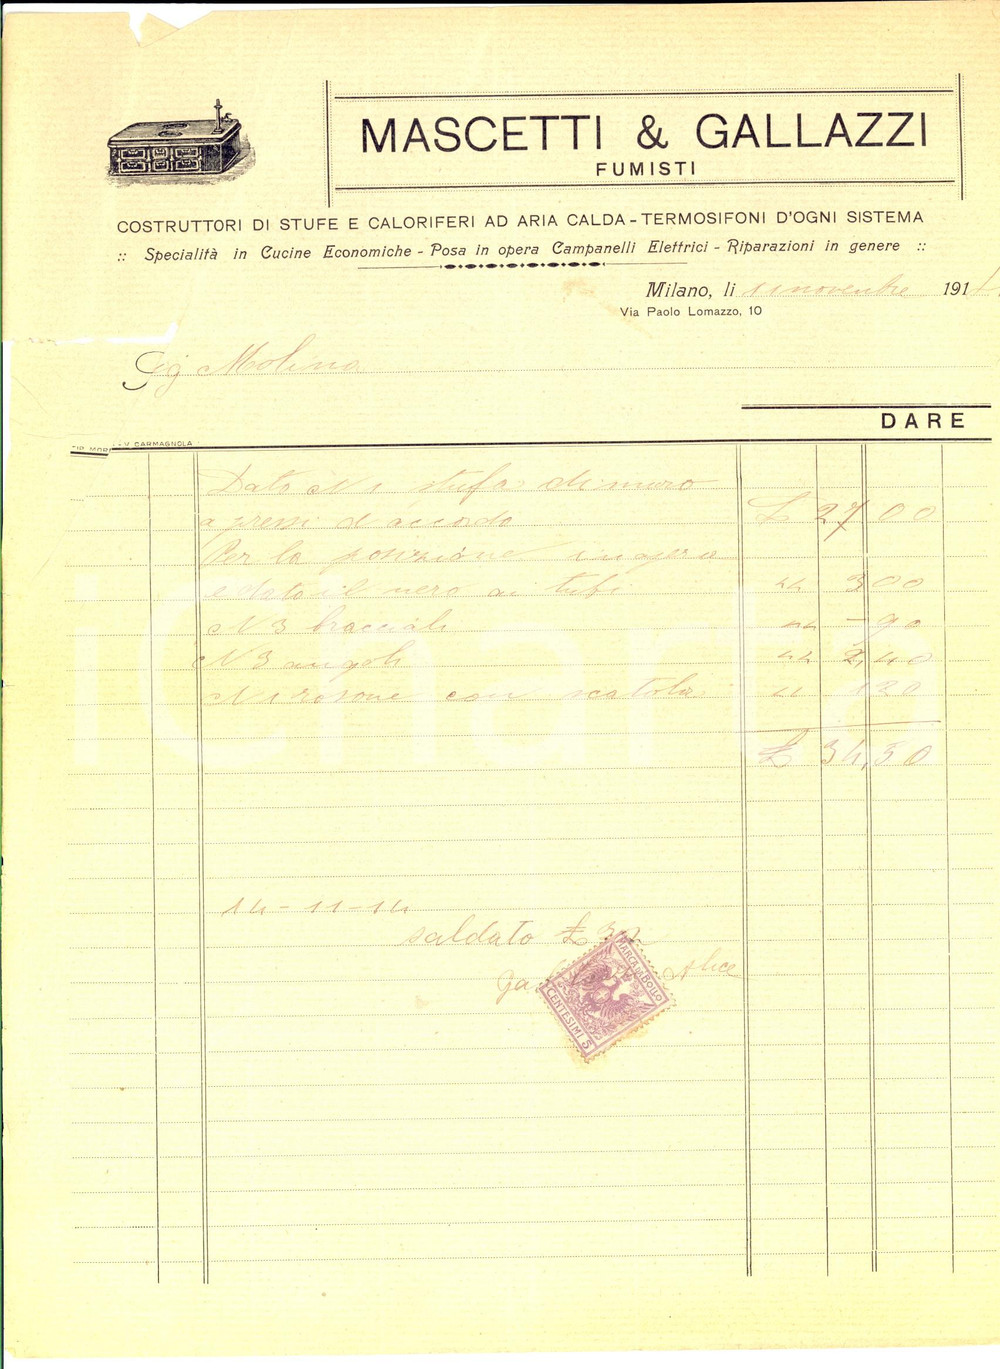 MASCETTI & GALLAZZI
FUMISTI
COSTRUTTORI DI STUFE E CALORIFERI AD ARIA CALDA - TERMOSIFONI D'OGNI SISTEMA
:: Specialità in Cucine Economiche - Posa in opera Campanelli Elettrici - Riparazioni in genere ::
Milano, li 11 novembre 1914
Via Paolo Lomazzo, 10
Sig Molina
DARE
CARMAGNOLA
Dato N 1 stufa di muro
a pressi d'accordo £ 27 00
Per la posizione in opera
e dato il nero ai tubi " 3 00
N 3 bracciali " - 90
N 3 angoli " 2,40
N 1 rosone con scatola " 1 20
£ 34,50
14-11-14
saldato £
MARCA DA BOLLO
CENTESIMI 5
iCharta